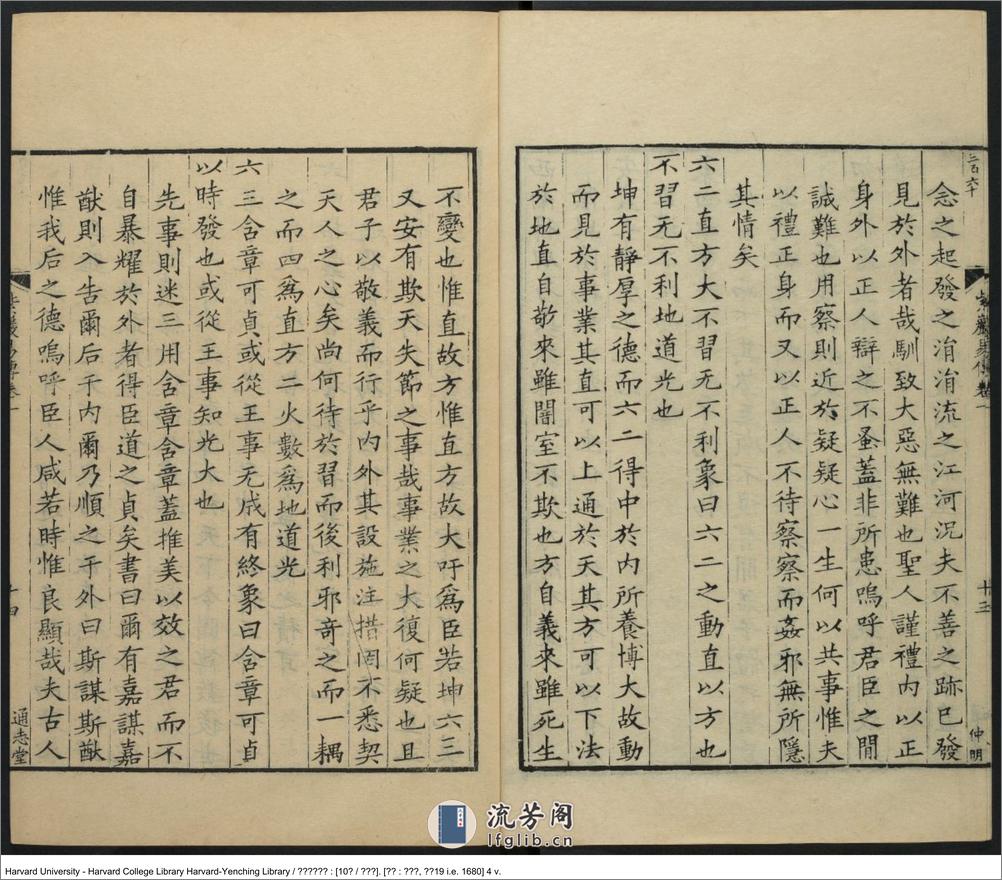 三百六十
紫巖易傳卷一
十三
仲明
念之起發之涓涓流之江河況夫不善之跡已發
見於外者哉馴致大惡無難也聖人謹禮內以正
身外以正人辯之不蚤蓋非所患嗚呼君臣之閒
誠難也用察則近於疑疑心一生何以共事惟夫
以禮正身而又以正人不待察察而姦邪無所隱
其情矣
六二直方大不習无不利象曰六二之動直以方也
不習无不利地道光也
坤有靜厚之德而六二得中於內所養博大故動
而見於事業其直可以上通於天其方可以下法
於地直自敬來雖闇室不欺也方自義來雖死生
不變也惟直故方惟直方故大吁為臣若坤六三
又安有欺天失節之事哉事業之大復何疑也且
君子以敬義而行乎內外其設施注措罔不悉契
天人之心矣尚何待於習而後利邪奇之而一耦
之而四為直方二火數為地道光
六三含章可貞或從王事无成有終象曰含章可貞
以時發也或從王事知光大也
先事則迷三用含章含章蓋推美以效之君而不
自暴耀於外者得臣道之貞矣書曰爾有嘉謀嘉
猷則入告爾后于內爾乃順之于外曰斯謀斯猷
惟我后之德嗚呼臣人咸若時惟良顯哉夫古人
十四
通志堂
流芳阁
lfglib.cn
Harvard University - Harvard College Library Harvard-Yenching Library / ?????? : [10? / ???]. [?? : ???, ??19 i.e. 1680] 4 v.